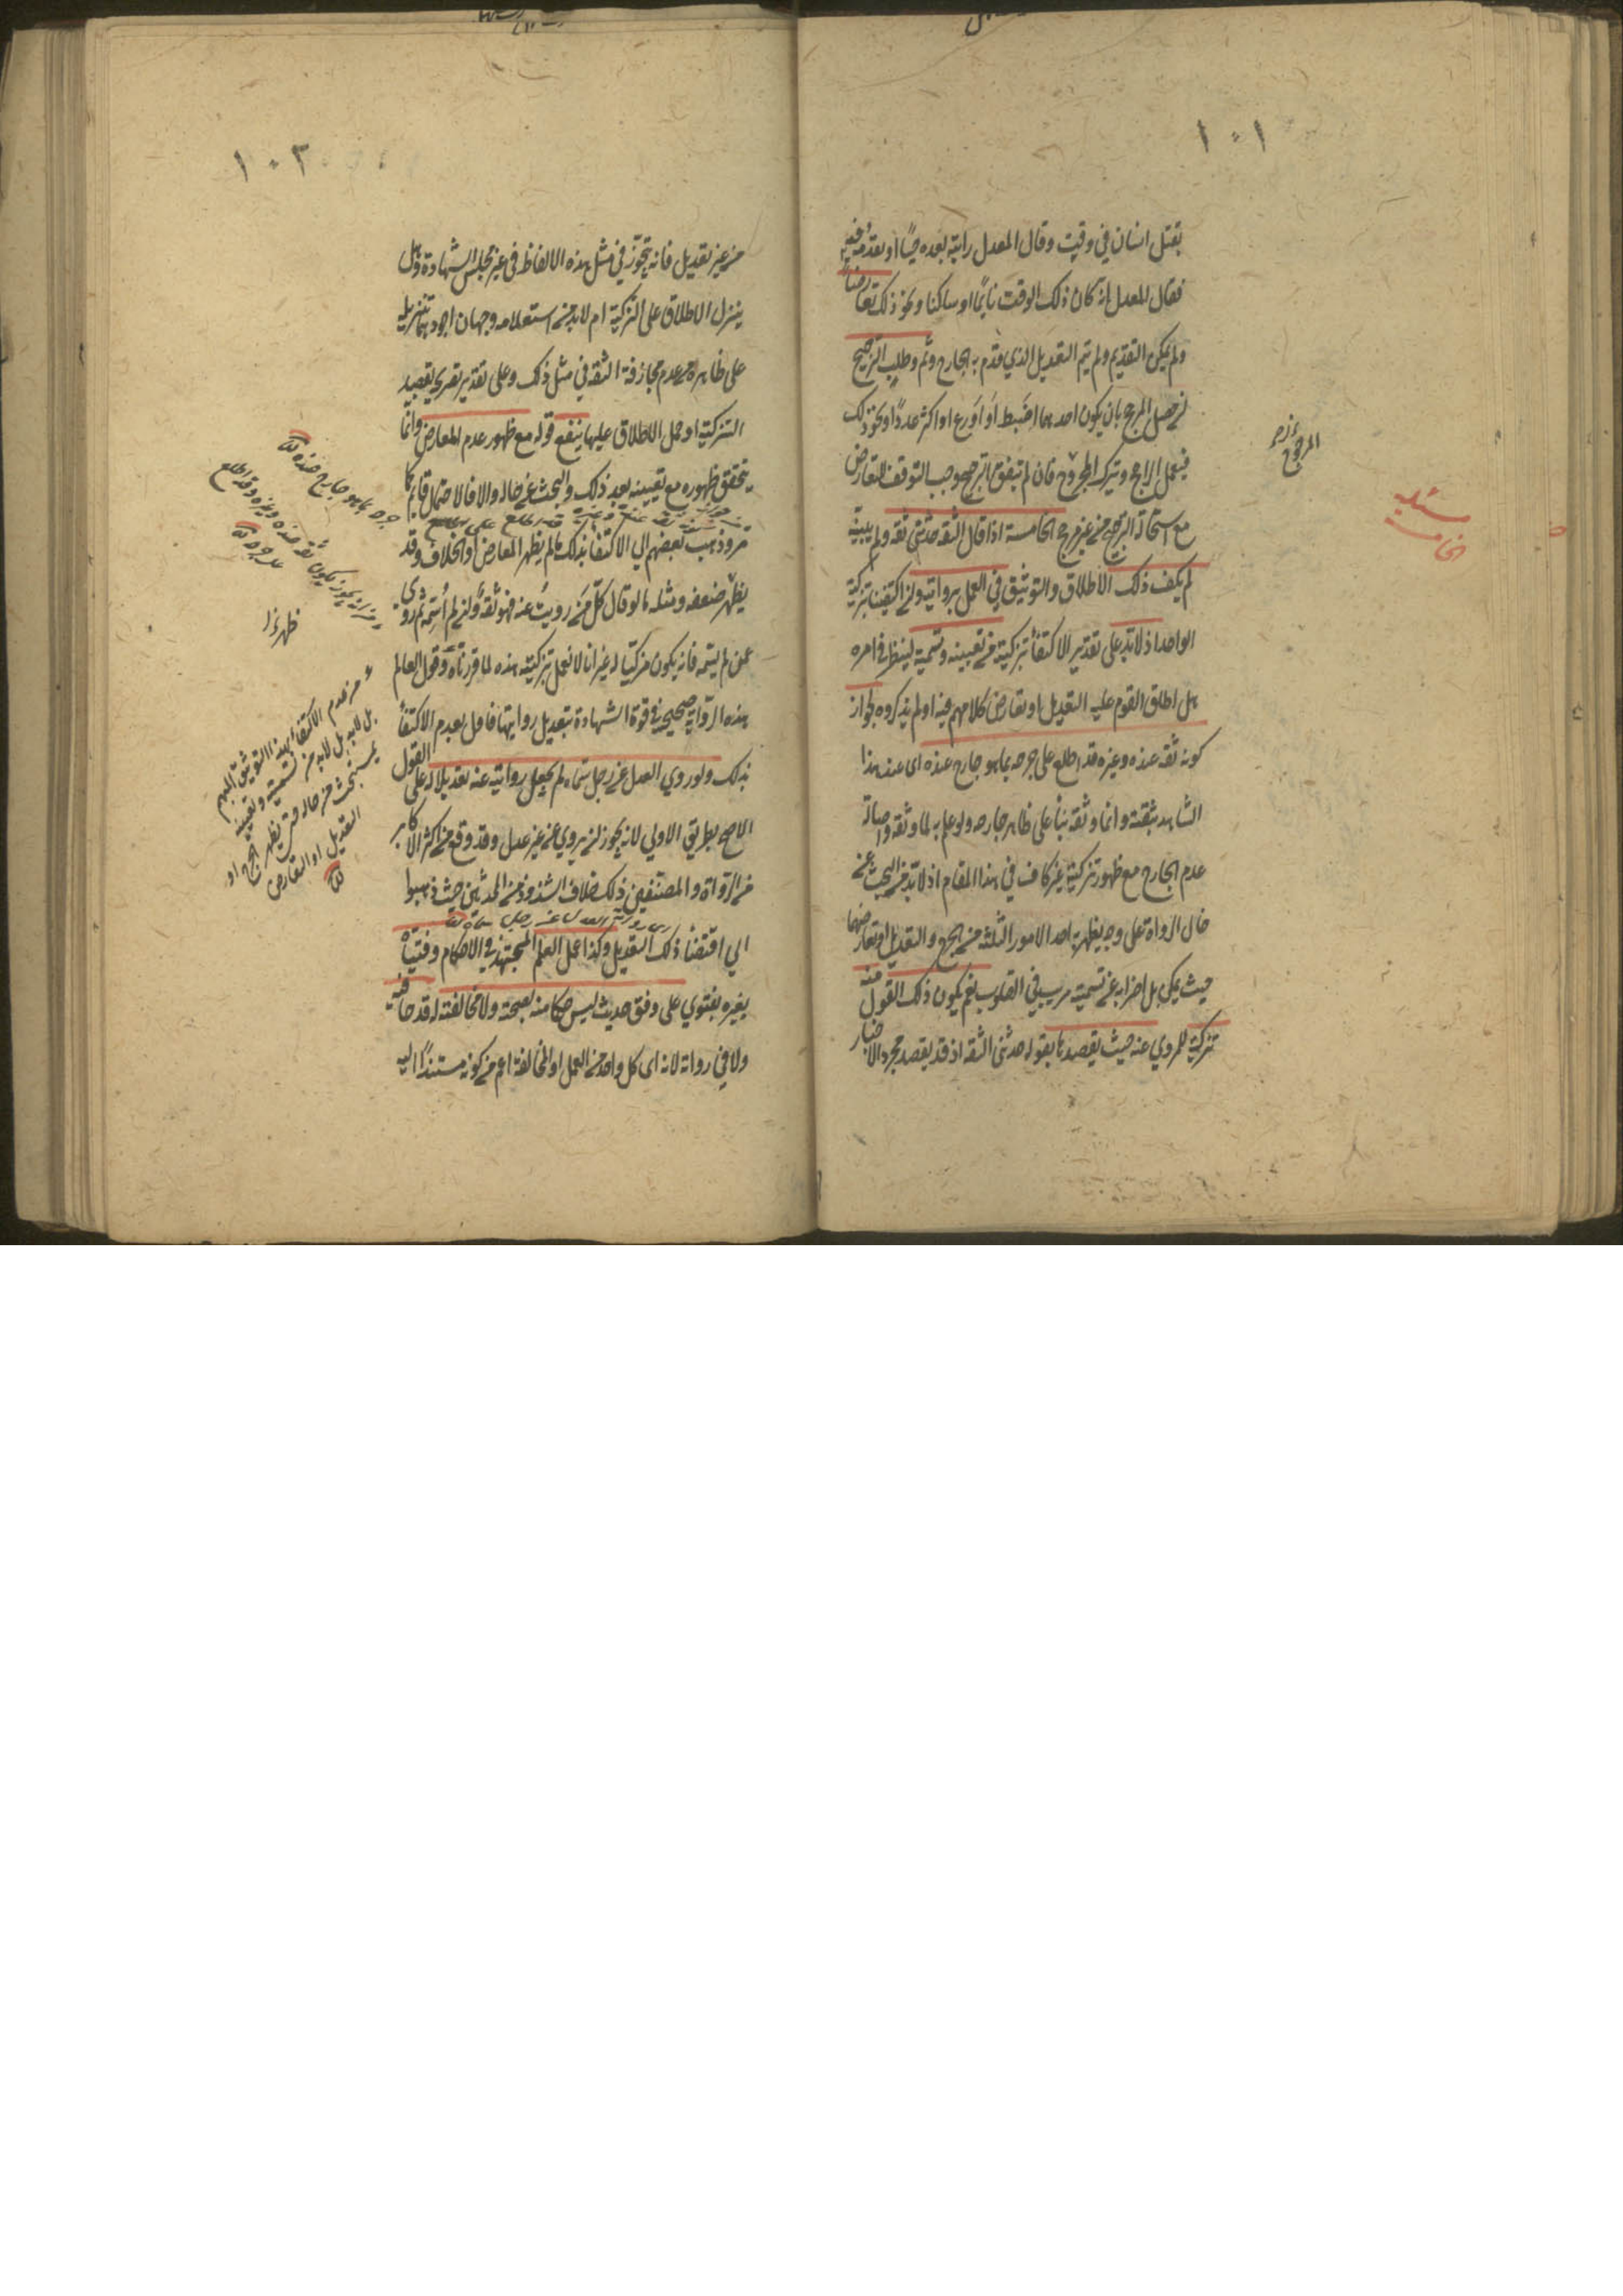 ١٠١
بقتل انسان في وقت وقال المعدل رايته بعده حيا او يقذفه فيه
فقال المعدل انه كان ذلك الوقت نائما او ساكنا ونحو ذلك تعارضا
ولم يمكن التقديم ولم يتم التعديل الذي قدم به الجارح ثم وطلب الترجيح
ان حصل المرجح بان يكون احدهما اضبط او اورع او اكثر عددا ونحو ذلك
فيعمل بالراجح ويترك المرجوح فان لم يتفق الترجيح وجب التوقف للتعارض
مع استحالة الترجيح من غير مرجح الخامسة اذا قال الثقة حدثني ثقة ولم يبينه
لم يكف ذلك الاطلاق والتوثيق في العمل بروايته وان اكتفينا بتزكية
الواحد اذ لابد على تقدير الاكتفاء بتزكيته من تعيينه وتسميته لينظر في امره
هل اطلق القوم عليه التعديل او تعارض كلامهم فيه او لم يذكروه لجواز
كونه ثقة عنده وغيره قد اطلع على جرحه بما هو جارح عنده اى عند هذا
الشاهد بثقته وانما وثقه بناء على ظاهر حاله ولو علم به لما وثقه واصالة
عدم الجارح مع ظهور تزكيته غير كاف في هذا المقام اذ لابد من البحث عن
حال الرواة على وجه يظهر به احد الامور الثلثة من الجرح والتعديل او تعارضهما
حيث يمكن بل اضرابه عن تسميته مريب في القلوب نعم يكون ذلك القول منه
تزكية للمروي عنه حيث يقصدها بقوله حدثني الثقة اذ قد يقصد مجرد الاخبار
المرجوح
مسئلة
الخامسة
١٠٢
من غير تعديل فانه يتجوز في مثل هذه الالفاظ في غير مجلس الشهادة وهل
ينزل الاطلاق على التزكية ام لابد من استعلامه وجهان اجودهما تنزيله
على ظاهره من عدم مجازفة الثقة في مثل ذلك وعلى تقدير تصريحه بقصد
التزكية او حمل الاطلاق عليها ينفع قوله مع ظهور عدم المعارض وانما
يتحقق ظهوره مع تعيينه بعد ذلك والبحث عن حاله والا فالاحتمال قايم كما
مر وذهب بعضهم الى الاكتفاء بذلك ما لم يظهر المعارض او الخلاف وقد
يظهر ضعفه ومثله ما لو قال كل من رويت عنه فهو ثقة وان لم اسمه ثم روى
عمن لم يسمه فانه يكون مزكيا له غير انا لا نعمل بتزكيته هذه لما قررناه وقول العالم
هذه الرواية صحيحة في قوة الشهادة بتعديل رواتها فاولى بعدم الاكتفاء
بذلك ولو روى العدل عن رجل سماه لم يجعل روايته عنه تعديلا له على القول
الاصح بطريق الاولى لانه يجوز ان يروي عن غير عدل وقد وقع من اكثر الاكابر
من الرواة والمصنفين ذلك خلافا لشذوذ من المحدثين حيث ذهبوا
الى اقتضاء ذلك التعديل وكذا عمل العالم المجتهد في الاحكام وفتياه
بغيره بفتوى على وفق حديث ليس حكما منه بصحته ولا مخالفته له قدحا فيه
ولا في رواته لانه اى كل واحد من العمل او المخالفة اعم من كونه مستندا اليه
جرحه بما هو جارح عنده
من انه يجوز ان يكون ثقة عنده وغيره قد اطلع
على جرحه
من عدم الاكتفاء بهذا التوثيق المبهم
بل لابد من تسميته وتعيينه
ليبحث عن حاله حتى يظهر الجرح او
التعديل او التعارض